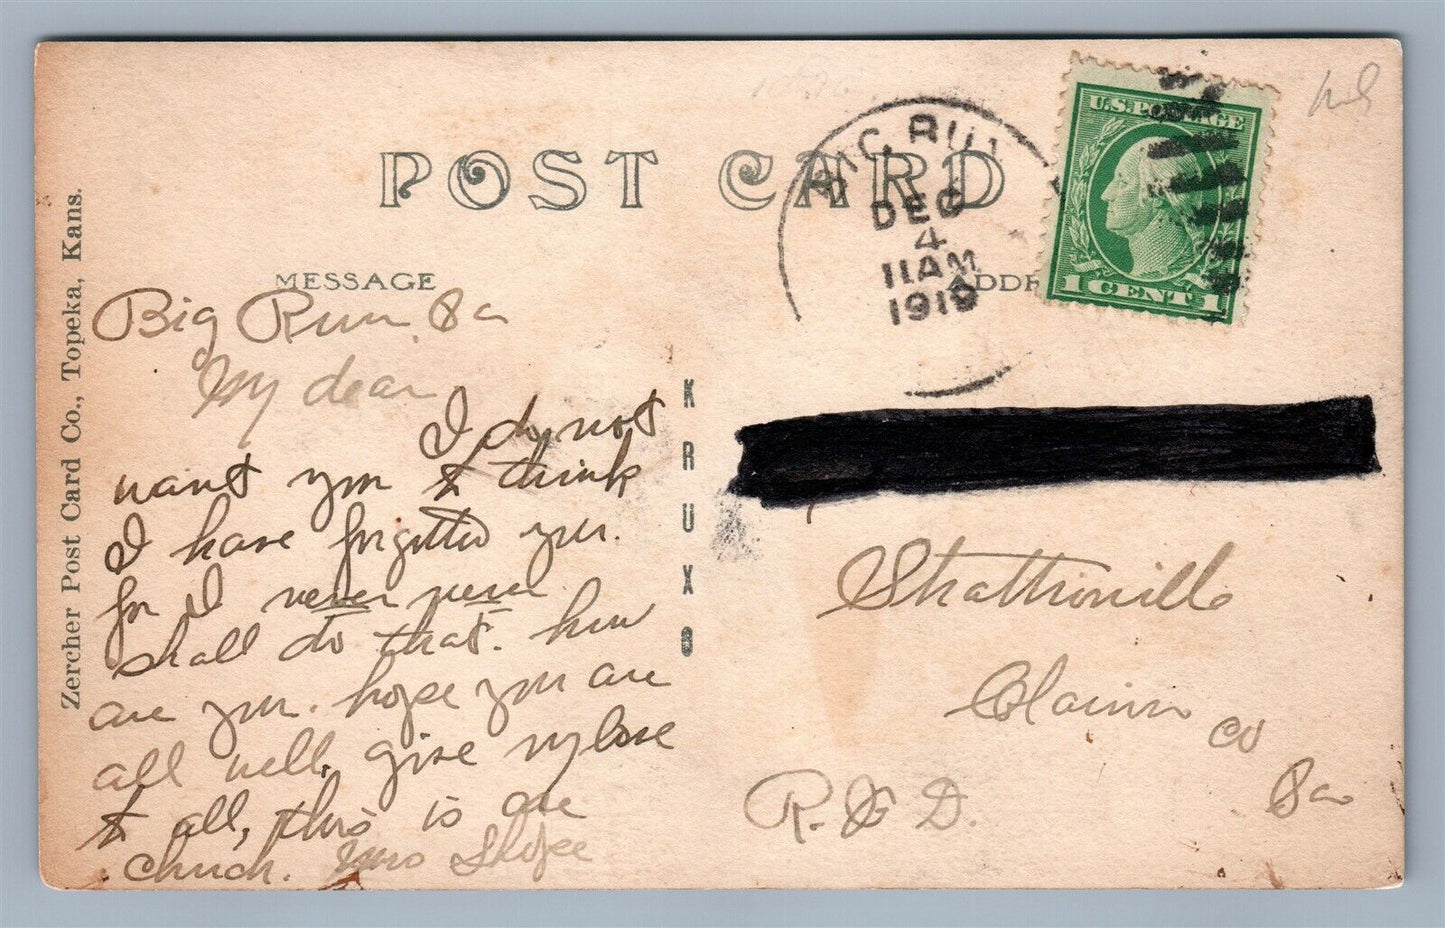 POST CARD
BIG RUN
DEC
4
11 AM
1919
U.S. POSTAGE
1 CENT 1
MESSAGE
ADDR
Zercher Post Card Co., Topeka, Kans.
KRUXO
Big Run Pa
My dear
I do not
want you to think
I have forgotten you.
for I never never
shall do that. how
are you. hope you are
all well, give my love
to all, this is our
church. Mrs Slofee
Strattonville
Clarion
Co
Pa
R. F. D.